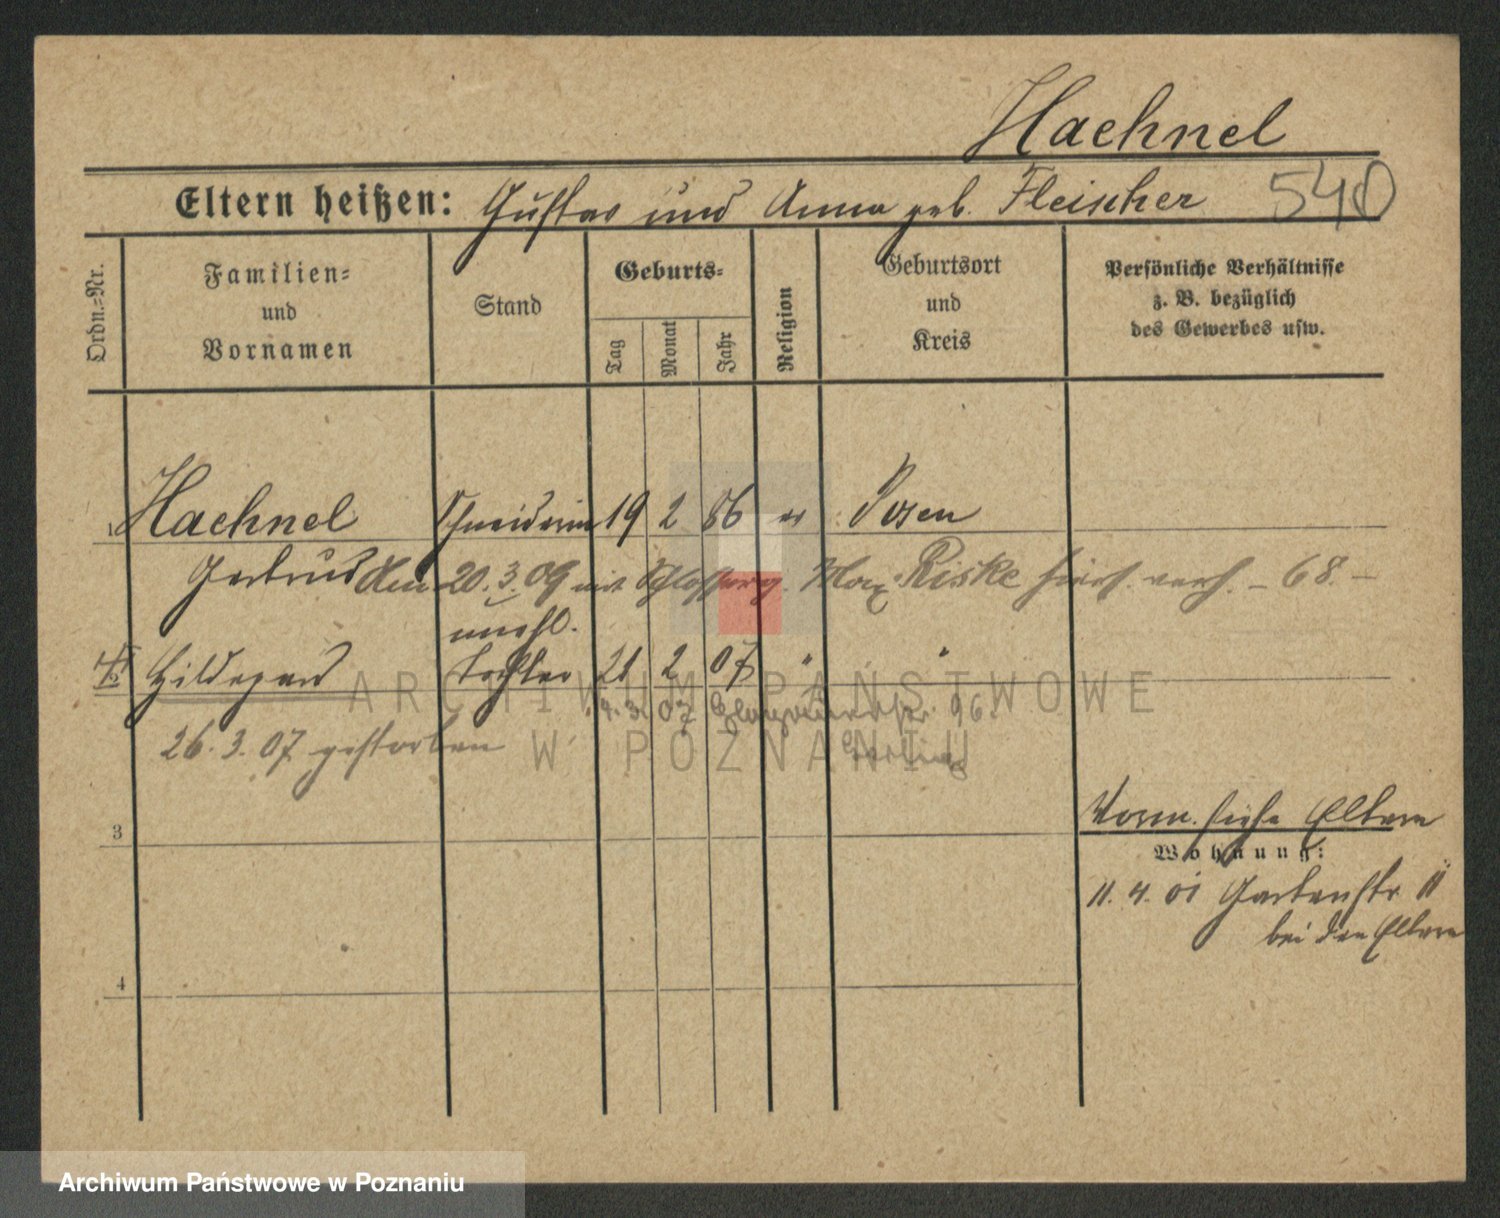 Haehnel
Eltern heißen: Gustav und Anna geb. Fleischer 540
Ordn.-Nr.
Familien-
und
Vornamen
Stand
Geburts-
Tag
Monat
Jahr
Religion
Geburtsort
und
Kreis
Persönliche Verhältnisse
z. B. bezüglich
des Gewerbes usw.
1 Haehnel Schneiderin 19 2 86 ev Posen
Gertrud den 20.3.09 mit Schlosserg. Max Riske hier verh. – 68. –
unehl.
2 Hildegard Tochter 21 2 07 " "
4.3.07 96.
26.3.07 gestorben
3
Vorm. siehe Eltern
Wohnung:
11.4.01 Gartenstr. 11
bei den Eltern
4
ARCHIWUM PAŃSTWOWE
W POZNANIU
Archiwum Państwowe w Poznaniu